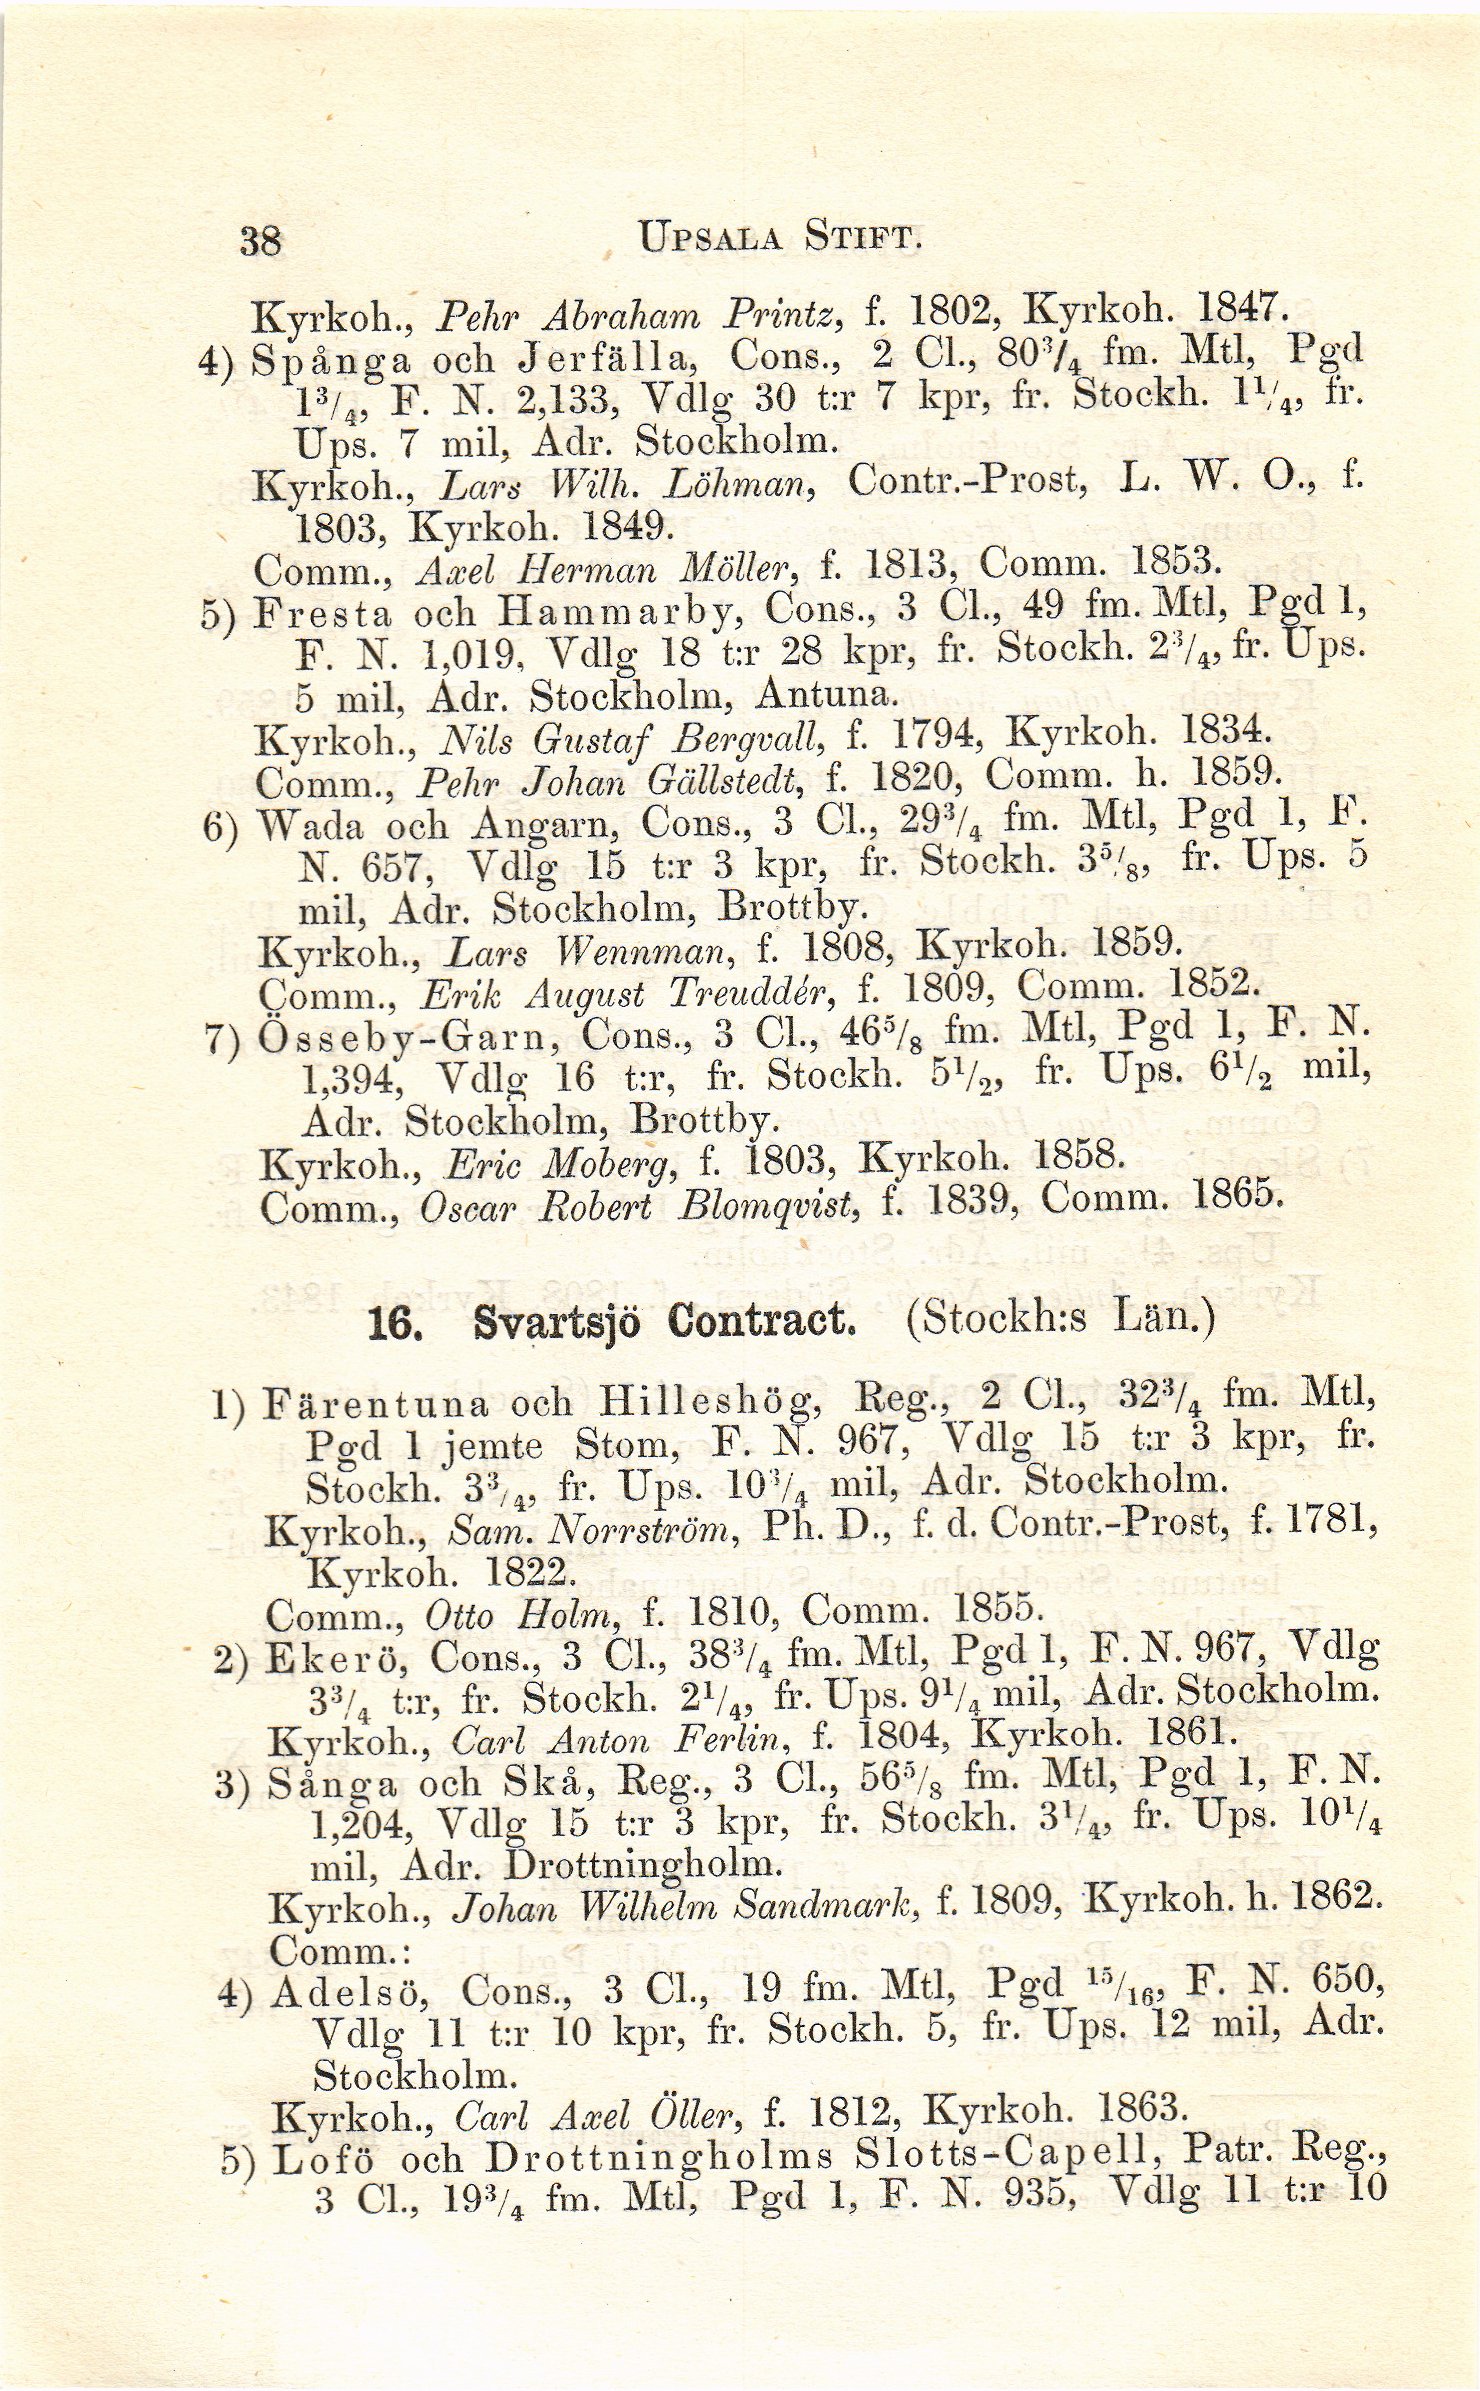 38 UPSALA STIFT.
Kyrkoh., Pehr Abraham Printz, f. 1802, Kyrkoh. 1847.
4) Spånga och Jerfälla, Cons., 2 Cl., 80³/₄ fm. Mtl, Pgd
1³/₄, F. N. 2,133, Vdlg 30 t:r 7 kpr, fr. Stockh. 1¹/₄, fr.
Ups. 7 mil, Adr. Stockholm.
Kyrkoh., Lars Wilh. Löhman, Contr.-Prost, L. W. O., f.
1803, Kyrkoh. 1849.
Comm., Axel Herman Möller, f. 1813, Comm. 1853.
5) Fresta och Hammarby, Cons., 3 Cl., 49 fm. Mtl, Pgd 1,
F. N. 1,019, Vdlg 18 t:r 28 kpr, fr. Stockh. 2³/₄, fr. Ups.
5 mil, Adr. Stockholm, Antuna.
Kyrkoh., Nils Gustaf Bergvall, f. 1794, Kyrkoh. 1834.
Comm., Pehr Johan Gällstedt, f. 1820, Comm. h. 1859.
6) Wada och Angarn, Cons., 3 Cl., 29³/₄ fm. Mtl, Pgd 1, F.
N. 657, Vdlg 15 t:r 3 kpr, fr. Stockh. 3⁵/₈, fr. Ups. 5
mil, Adr. Stockholm, Brottby.
Kyrkoh., Lars Wennman, f. 1808, Kyrkoh. 1859.
Comm., Erik August Treuddér, f. 1809, Comm. 1852.
7) Össeby-Garn, Cons., 3 Cl., 46⁵/₈ fm. Mtl, Pgd 1, F. N.
1,394, Vdlg 16 t:r, fr. Stockh. 5¹/₂, fr. Ups. 6¹/₂ mil,
Adr. Stockholm, Brottby.
Kyrkoh., Eric Moberg, f. 1803, Kyrkoh. 1858.
Comm., Oscar Robert Blomqvist, f. 1839, Comm. 1865.
16. Svartsjö Contract. (Stockh:s Län.)
1) Färentuna och Hilleshög, Reg., 2 Cl., 32³/₄ fm. Mtl,
Pgd 1 jemte Stom, F. N. 967, Vdlg 15 t:r 3 kpr, fr.
Stockh. 3³/₄, fr. Ups. 10³/₄ mil, Adr. Stockholm.
Kyrkoh., Sam. Norrström, Ph. D., f. d. Contr.-Prost, f. 1781,
Kyrkoh. 1822.
Comm., Otto Holm, f. 1810, Comm. 1855.
2) Ekerö, Cons., 3 Cl., 38³/₄ fm. Mtl, Pgd 1, F. N. 967, Vdlg
3³/₄ t:r, fr. Stockh. 2¹/₄, fr. Ups. 9¹/₄ mil, Adr. Stockholm.
Kyrkoh., Carl Anton Ferlin, f. 1804, Kyrkoh. 1861.
3) Sånga och Skå, Reg., 3 Cl., 56⁵/₈ fm. Mtl, Pgd 1, F. N.
1,204, Vdlg 15 t:r 3 kpr, fr. Stockh. 3¹/₄, fr. Ups. 10¹/₄
mil, Adr. Drottningholm.
Kyrkoh., Johan Wilhelm Sandmark, f. 1809, Kyrkoh. h. 1862.
Comm.:
4) Adelsö, Cons., 3 Cl., 19 fm. Mtl, Pgd ¹⁵/₁₆, F. N. 650,
Vdlg 11 t:r 10 kpr, fr. Stockh. 5, fr. Ups. 12 mil, Adr.
Stockholm.
Kyrkoh., Carl Axel Öller, f. 1812, Kyrkoh. 1863.
5) Lofö och Drottningholms Slotts-Capell, Patr. Reg.,
3 Cl., 19³/₄ fm. Mtl, Pgd 1, F. N. 935, Vdlg 11 t:r 10